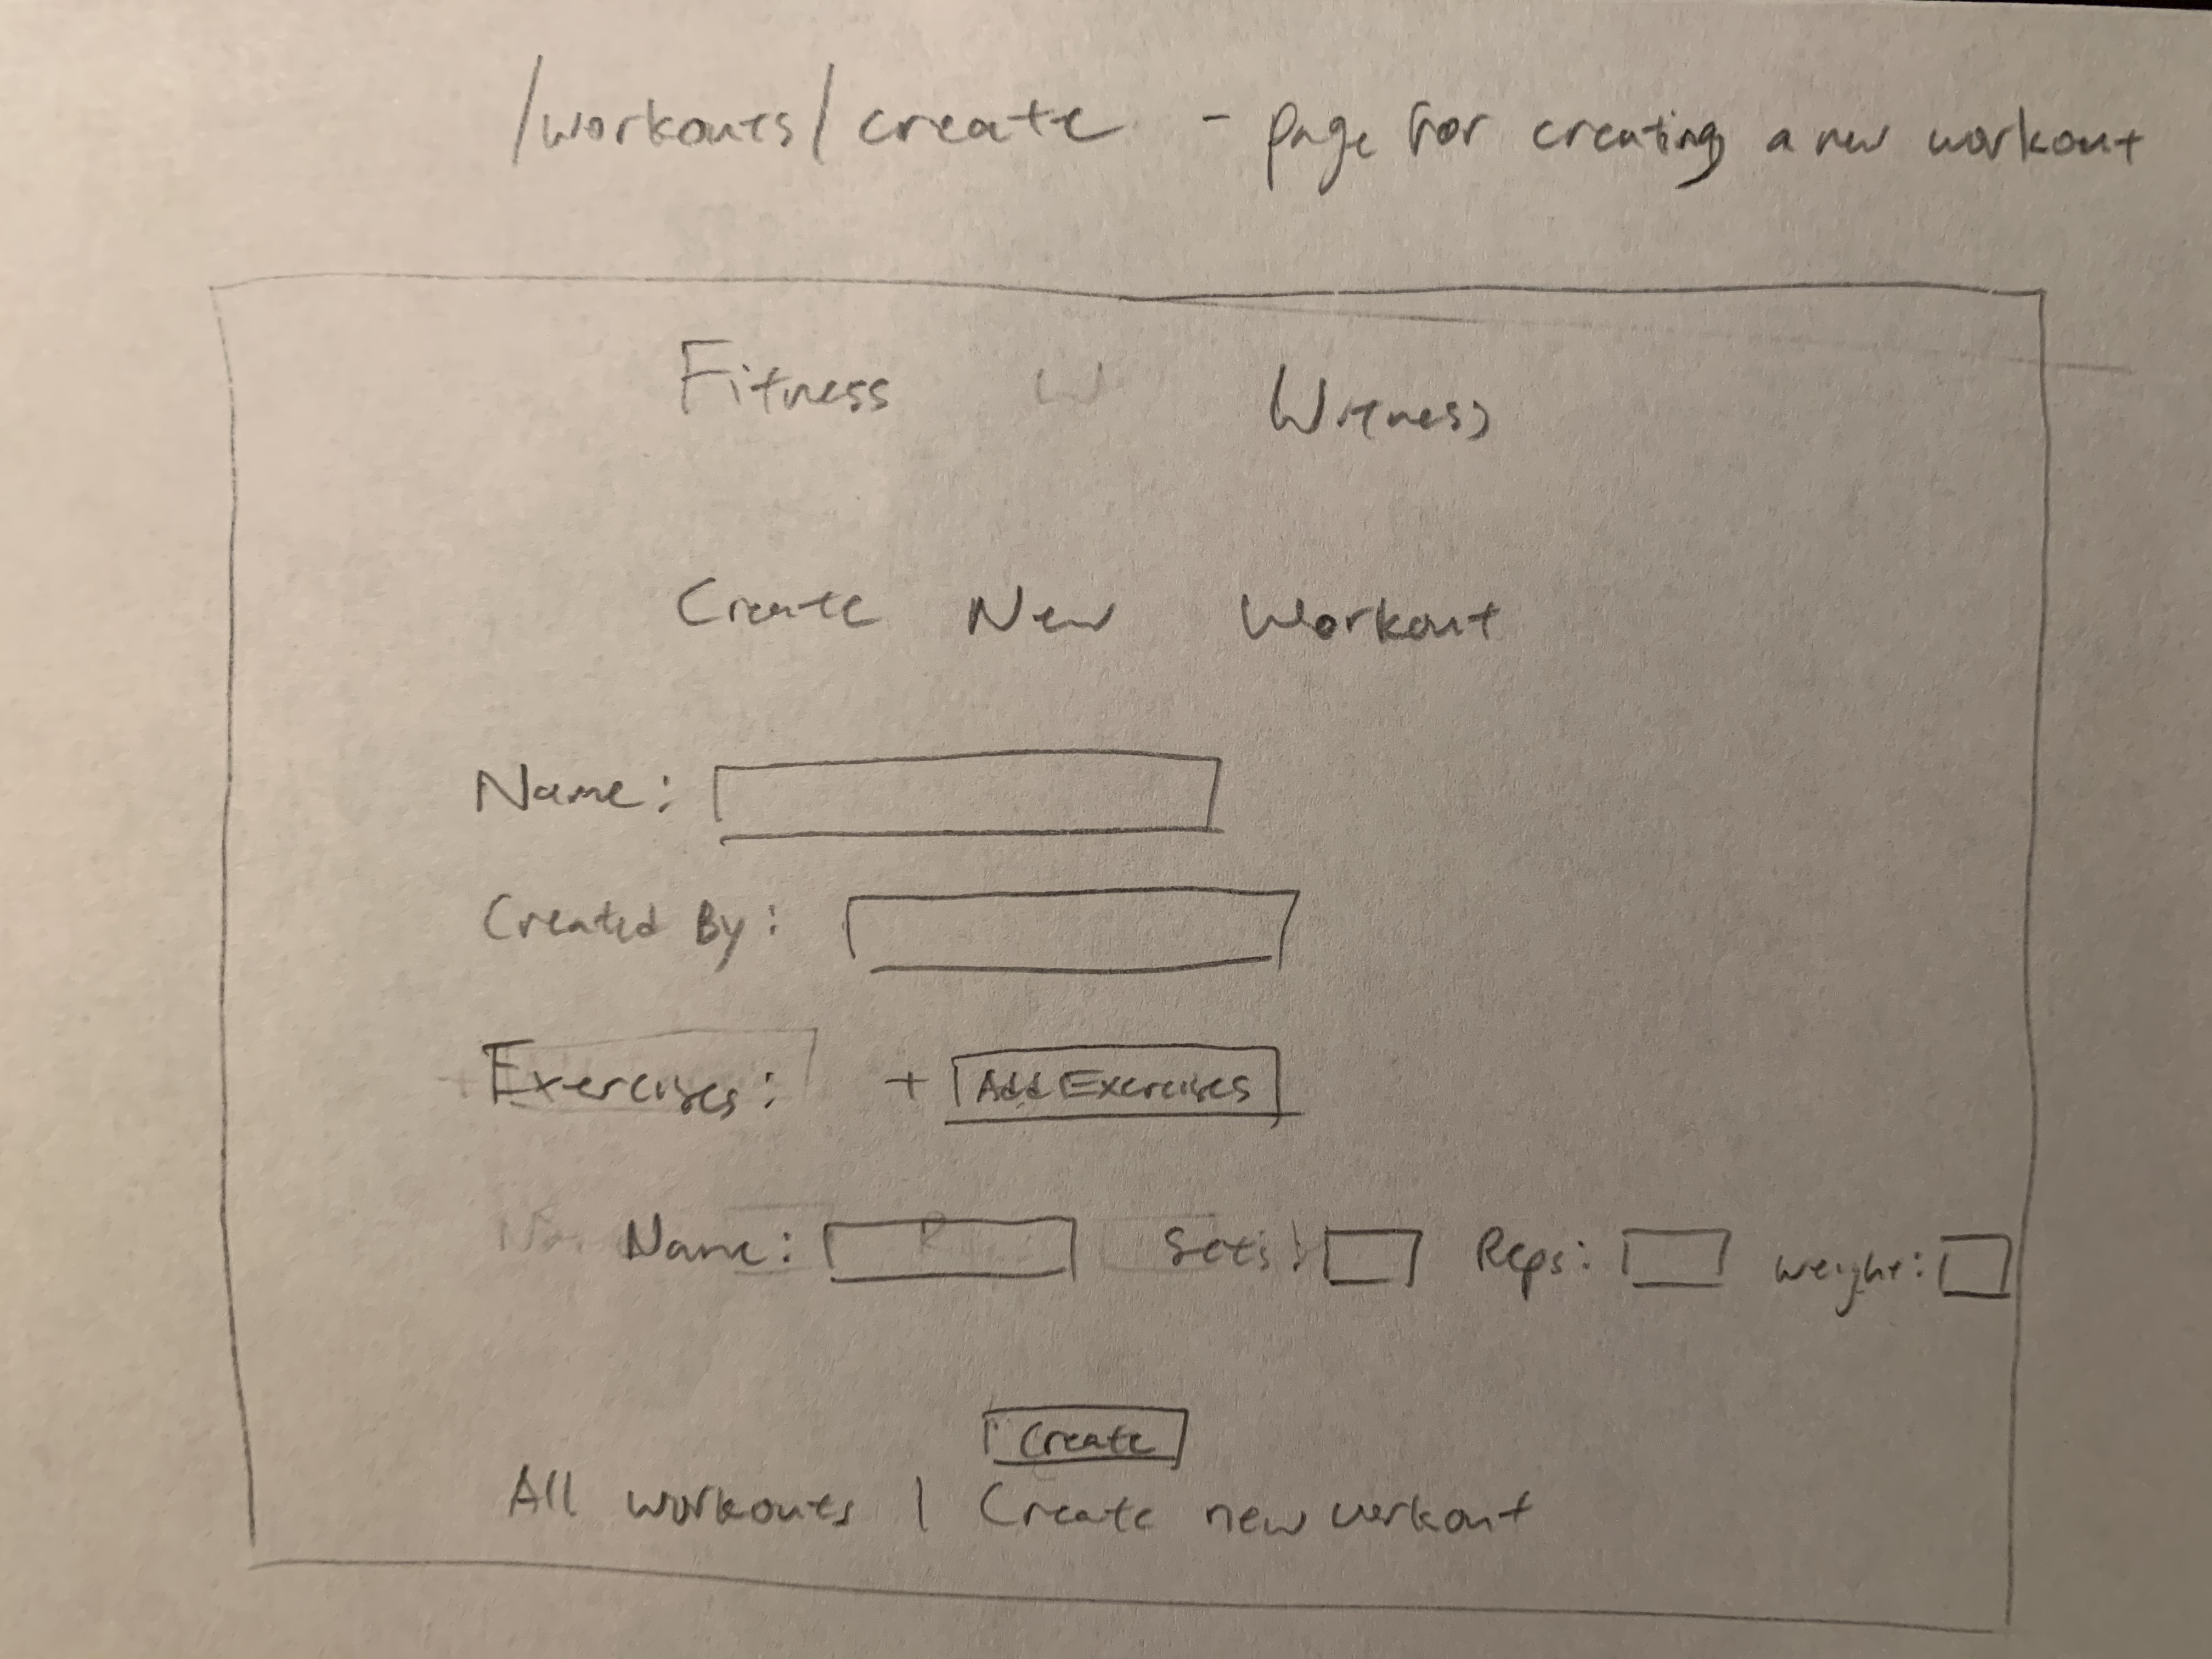 /workouts/create - page for creating a new workout
Fitness Witness
Create New Workout
Name:
Created By:
Exercises: + Add Exercises
Name: Sets: Reps: weight:
Create
All workouts | Create new workout